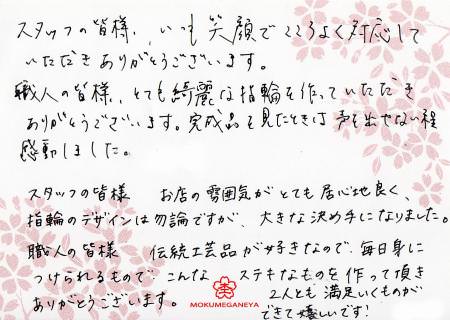 スタッフの皆様、いつも笑顔でこころよく対応して
いただきありがとうございます。
職人の皆様、とても綺麗な指輪を作っていただき
ありがとうございます。完成品を見たときは声を出せない程
感動しました。
スタッフの皆様　お店の雰囲気がとても居心地良く、
指輪のデザインは勿論ですが、大きな決め手になりました。
職人の皆様　伝統工芸品が好きなので、毎日身に
つけられるもので、こんな ステキなものを作って頂き
ありがとうございます。
2人とも満足いくものが
できて嬉しいです!
MOKUMEGANEYA